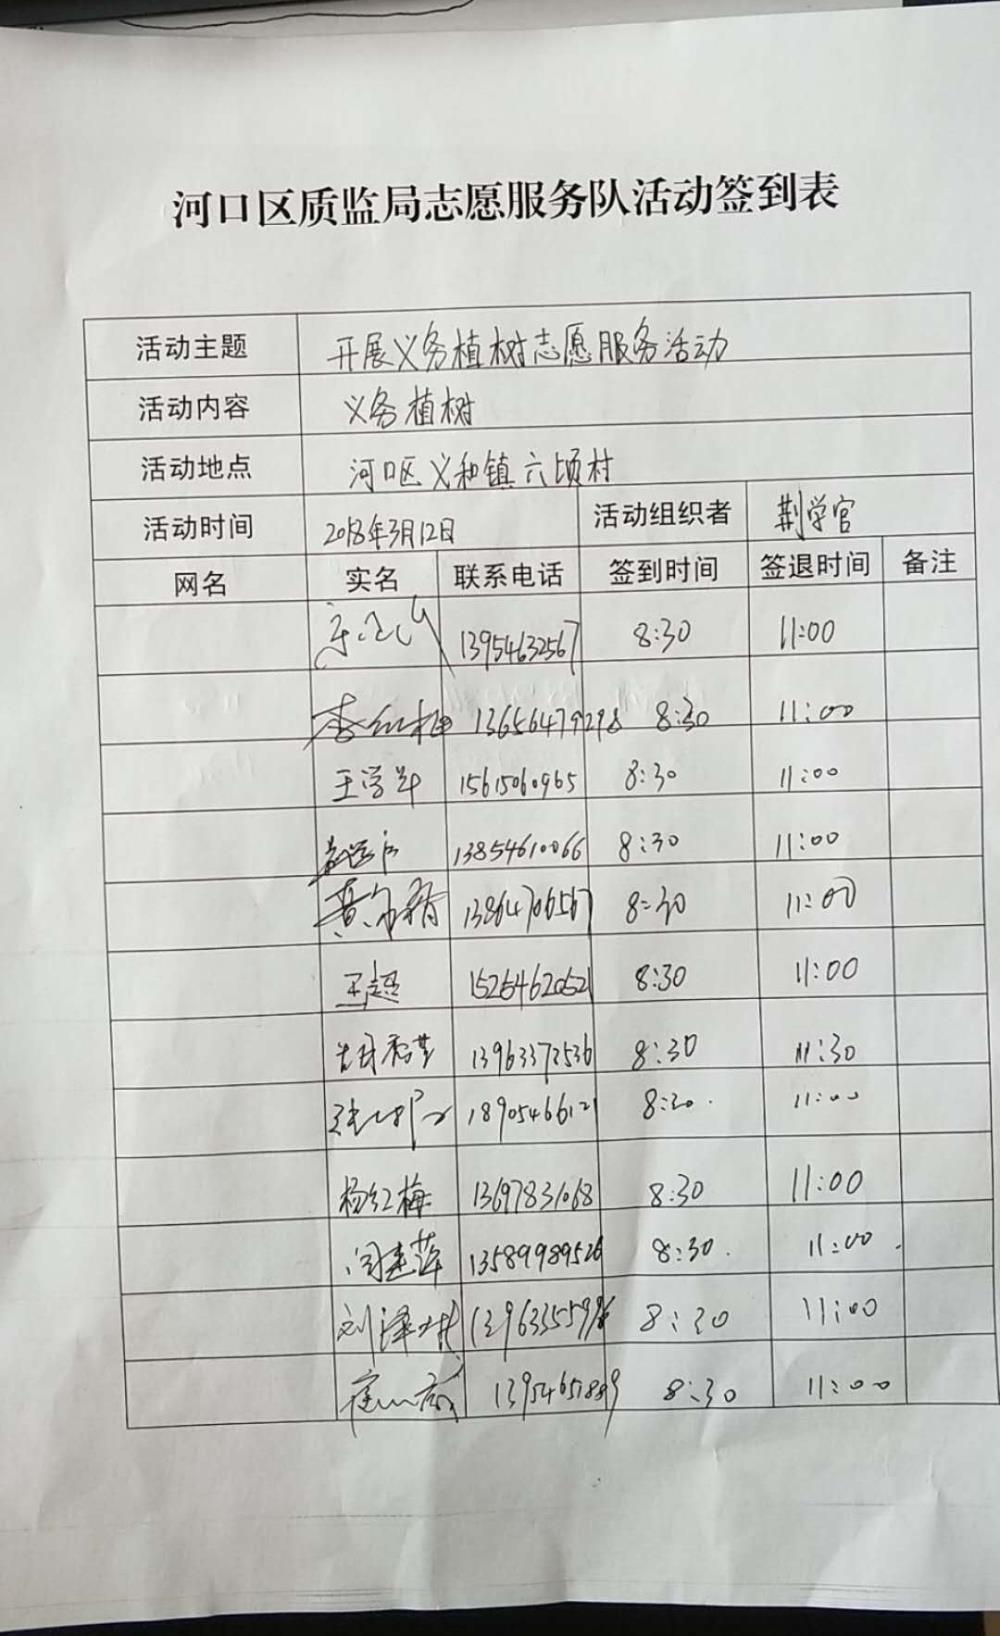 河口区质监局志愿服务队活动签到表
活动主题 开展义务植树志愿服务活动
活动内容 义务植树
活动地点 河口区义和镇六顷村
活动时间 2018年3月12日 活动组织者 荆学官
网名 实名 联系电话 签到时间 签退时间 备注
13954632567 8:30 11:00
李红梅 13656479298 8:30 11:00
王学军 15615060965 8:30 11:00
13854610066 8:30 11:00
13864706567 8:30 11:00
王超 15254462052 8:30 11:00
胡秀芸 13963372536 8:30 11:30
18905466121 8:30 11:00
杨红梅 13697831068 8:30 11:00
闫建萍 13589989526 8:30 11:00
刘泽 8:30 11:00
8:30 11:00